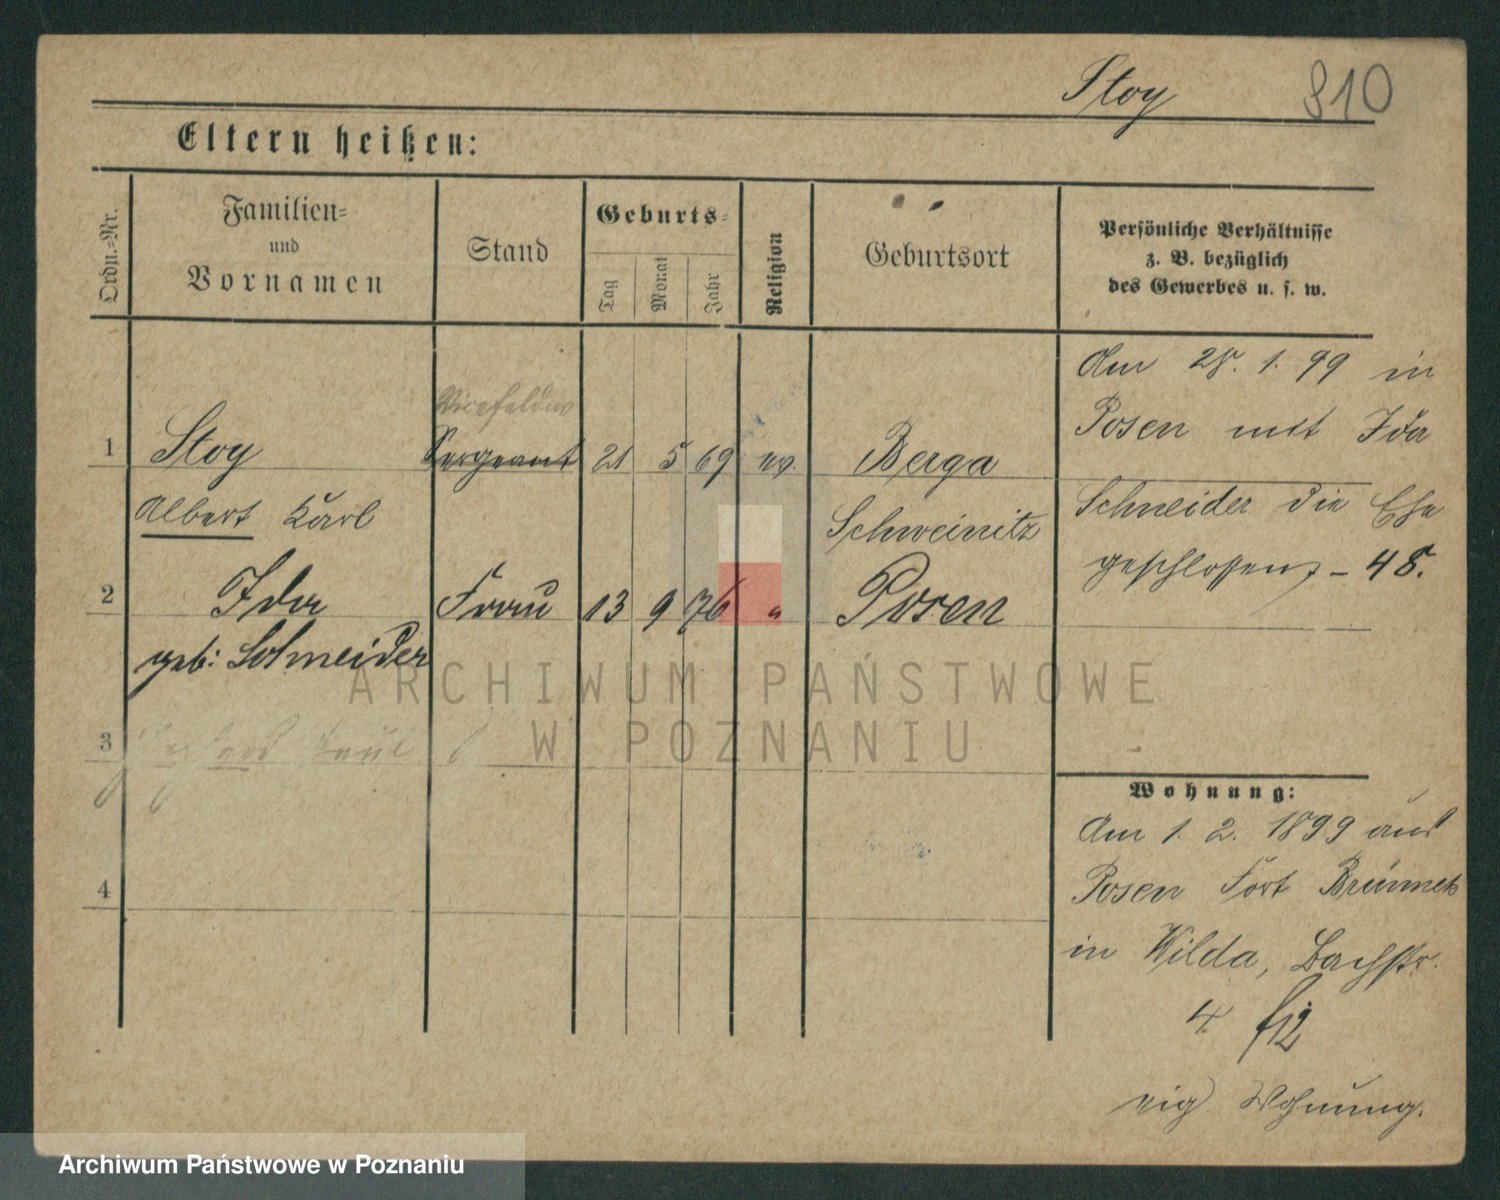 Stoy 810
Eltern heißen:
Ordn.-Nr.
Familien-
und
Vornamen
Stand
Geburts-
Tag
Monat
Jahr
Religion
Geburtsort
Persönliche Verhältnisse
z. B. bezüglich
des Gewerbes u. s. w.
Am 28. 1. 99 in
Posen mit Ida
Schneider die Ehe
geschlossen, - 48.
Vicefeldw
1 Stoy Sergeant 21 5 69 ev. Berga
Albert Karl Schweinitz
2 Ida Frau 13 9 76 " Posen
geb: Schneider
3 Paul
4
Wohnung:
Am 1. 2. 1899 aus
Posen Fort Brünneck
in Wilda, Bachstr.
4
eig Wohnung.
ARCHIWUM PAŃSTWOWE
W POZNANIU
Archiwum Państwowe w Poznaniu